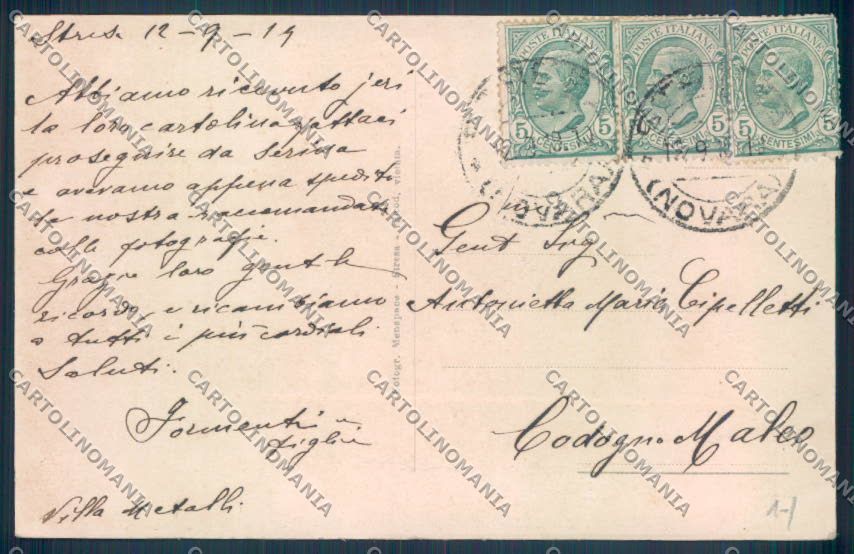 Stresa 12-9-19
Abbiamo ricevuto jeri
la loro cartolina
proseguire da
e avevamo appena spedito
la nostra raccomandata
colle fotografie.
Grazie loro gentile
ricordo, e ricambiamo
a tutti i più cordiali
Saluti.
Formenti e
figlie
Villa Metalli
Fotogr. Menspace - Stresa
POSTE ITALIANE
5 CENTESIMI 5
POSTE ITALIANE
5 CENTESIMI 5
POSTE ITALIANE
5 CENTESIMI 5
(NOVARA)
(NOVARA)
Gent Sig
Antonietta Maria Cipelletti
Codogno Maleo
CARTOLINOMANIA